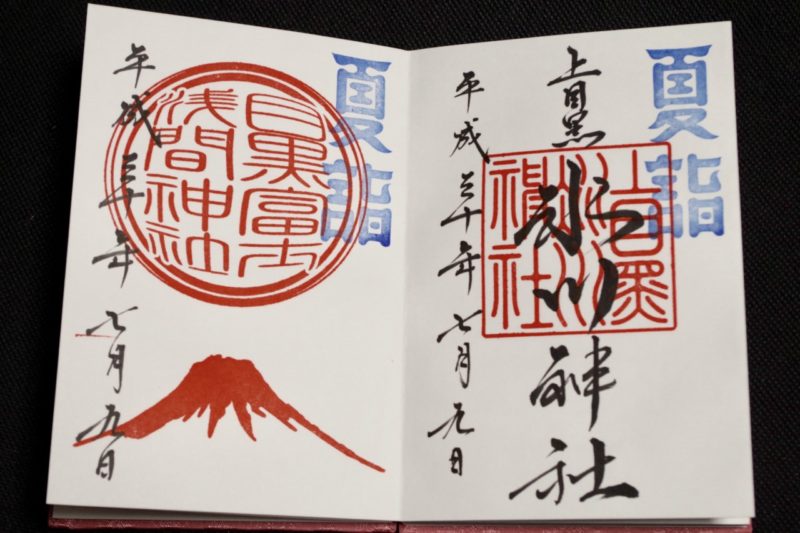 夏詣
上目黒
氷川神社
上目黒
氷川
神社
平成三十年七月九日
夏詣
目黒富士
浅間神社
平成三十年七月九日